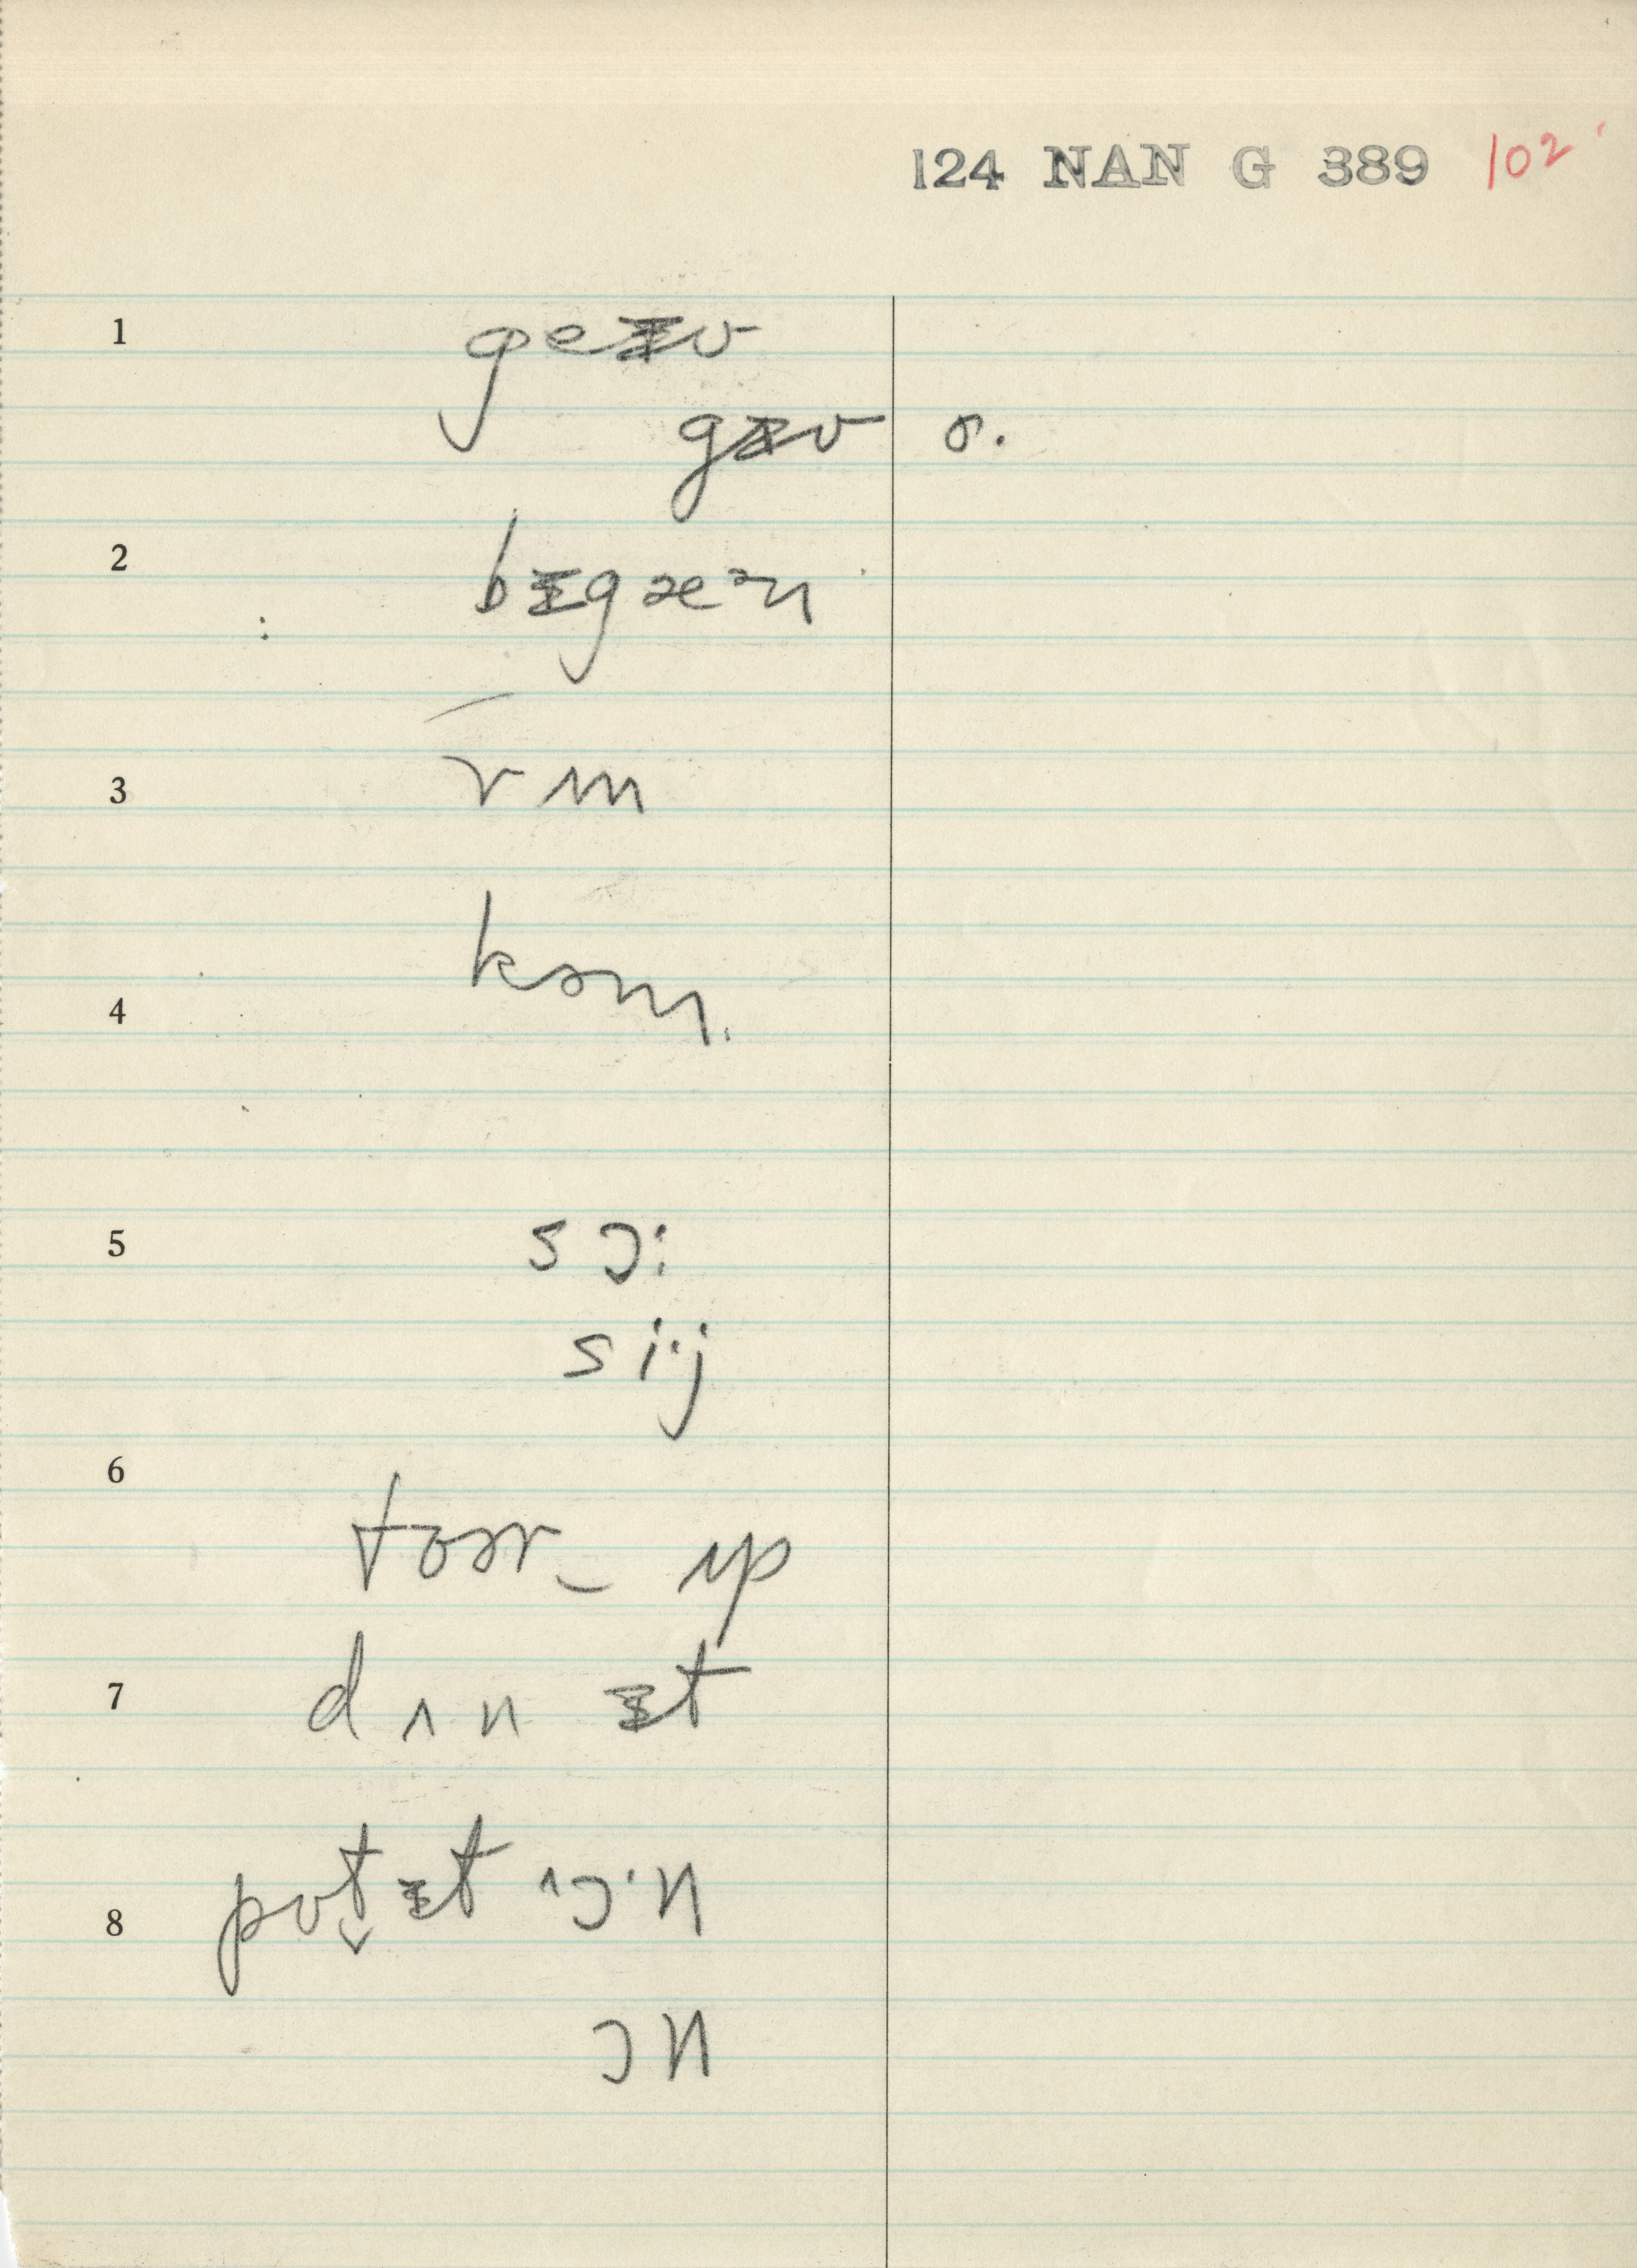 124 NAN G 389 102
1 geɪv
gɪv ɚ.
2 bɪgæᵊn
3 rʌn
4 kəm.
5 s ɔ:
s i·j
6 toɚr‿ ʌp
7 d ʌ n ɪt
8 pʊt̬ɪt ^ɔ·n
ɔn